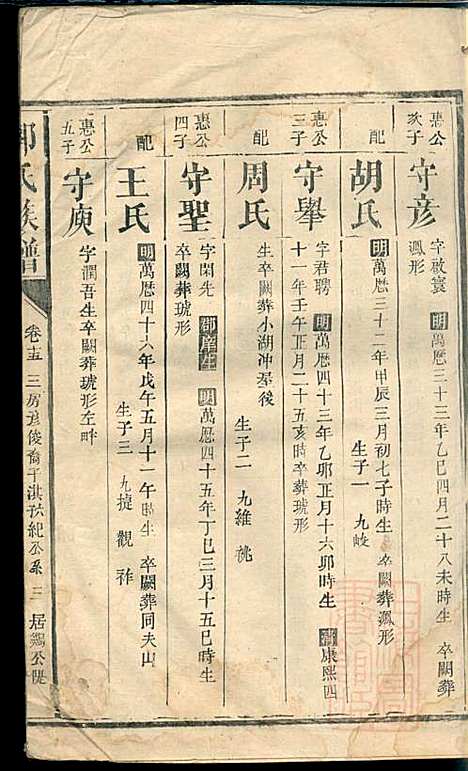 惠公次子
守彥
字啟寰 明萬曆三十三年乙巳四月二十八未時生 卒闕葬
渢形
配
胡氏
明萬曆三十二年甲辰三月初七子時生 卒闕葬渢形
生子一 九
惠公三子
守舉
字君聘 明萬曆四十三年乙卯正月十六卯時生 清康熙四
十一年壬午正月二十五亥時卒葬琥形
配
周氏
生卒闕葬小湖冲屋後
生子二 九維 祧
惠公四子
守聖
字閑先 郡庠生 明萬曆四十五年丁巳三月十五巳時生
卒闕葬琥形
配
王氏
明萬曆四十六年戊午五月十一午時生 卒闕葬同夫山
生子三 九捷 觀 祚
惠公五子
守庾
字潤吾生卒闕葬琥形左畔
氏族譜
卷十五 三房彥俊裔千淇秋紀公系 三 居鷄公